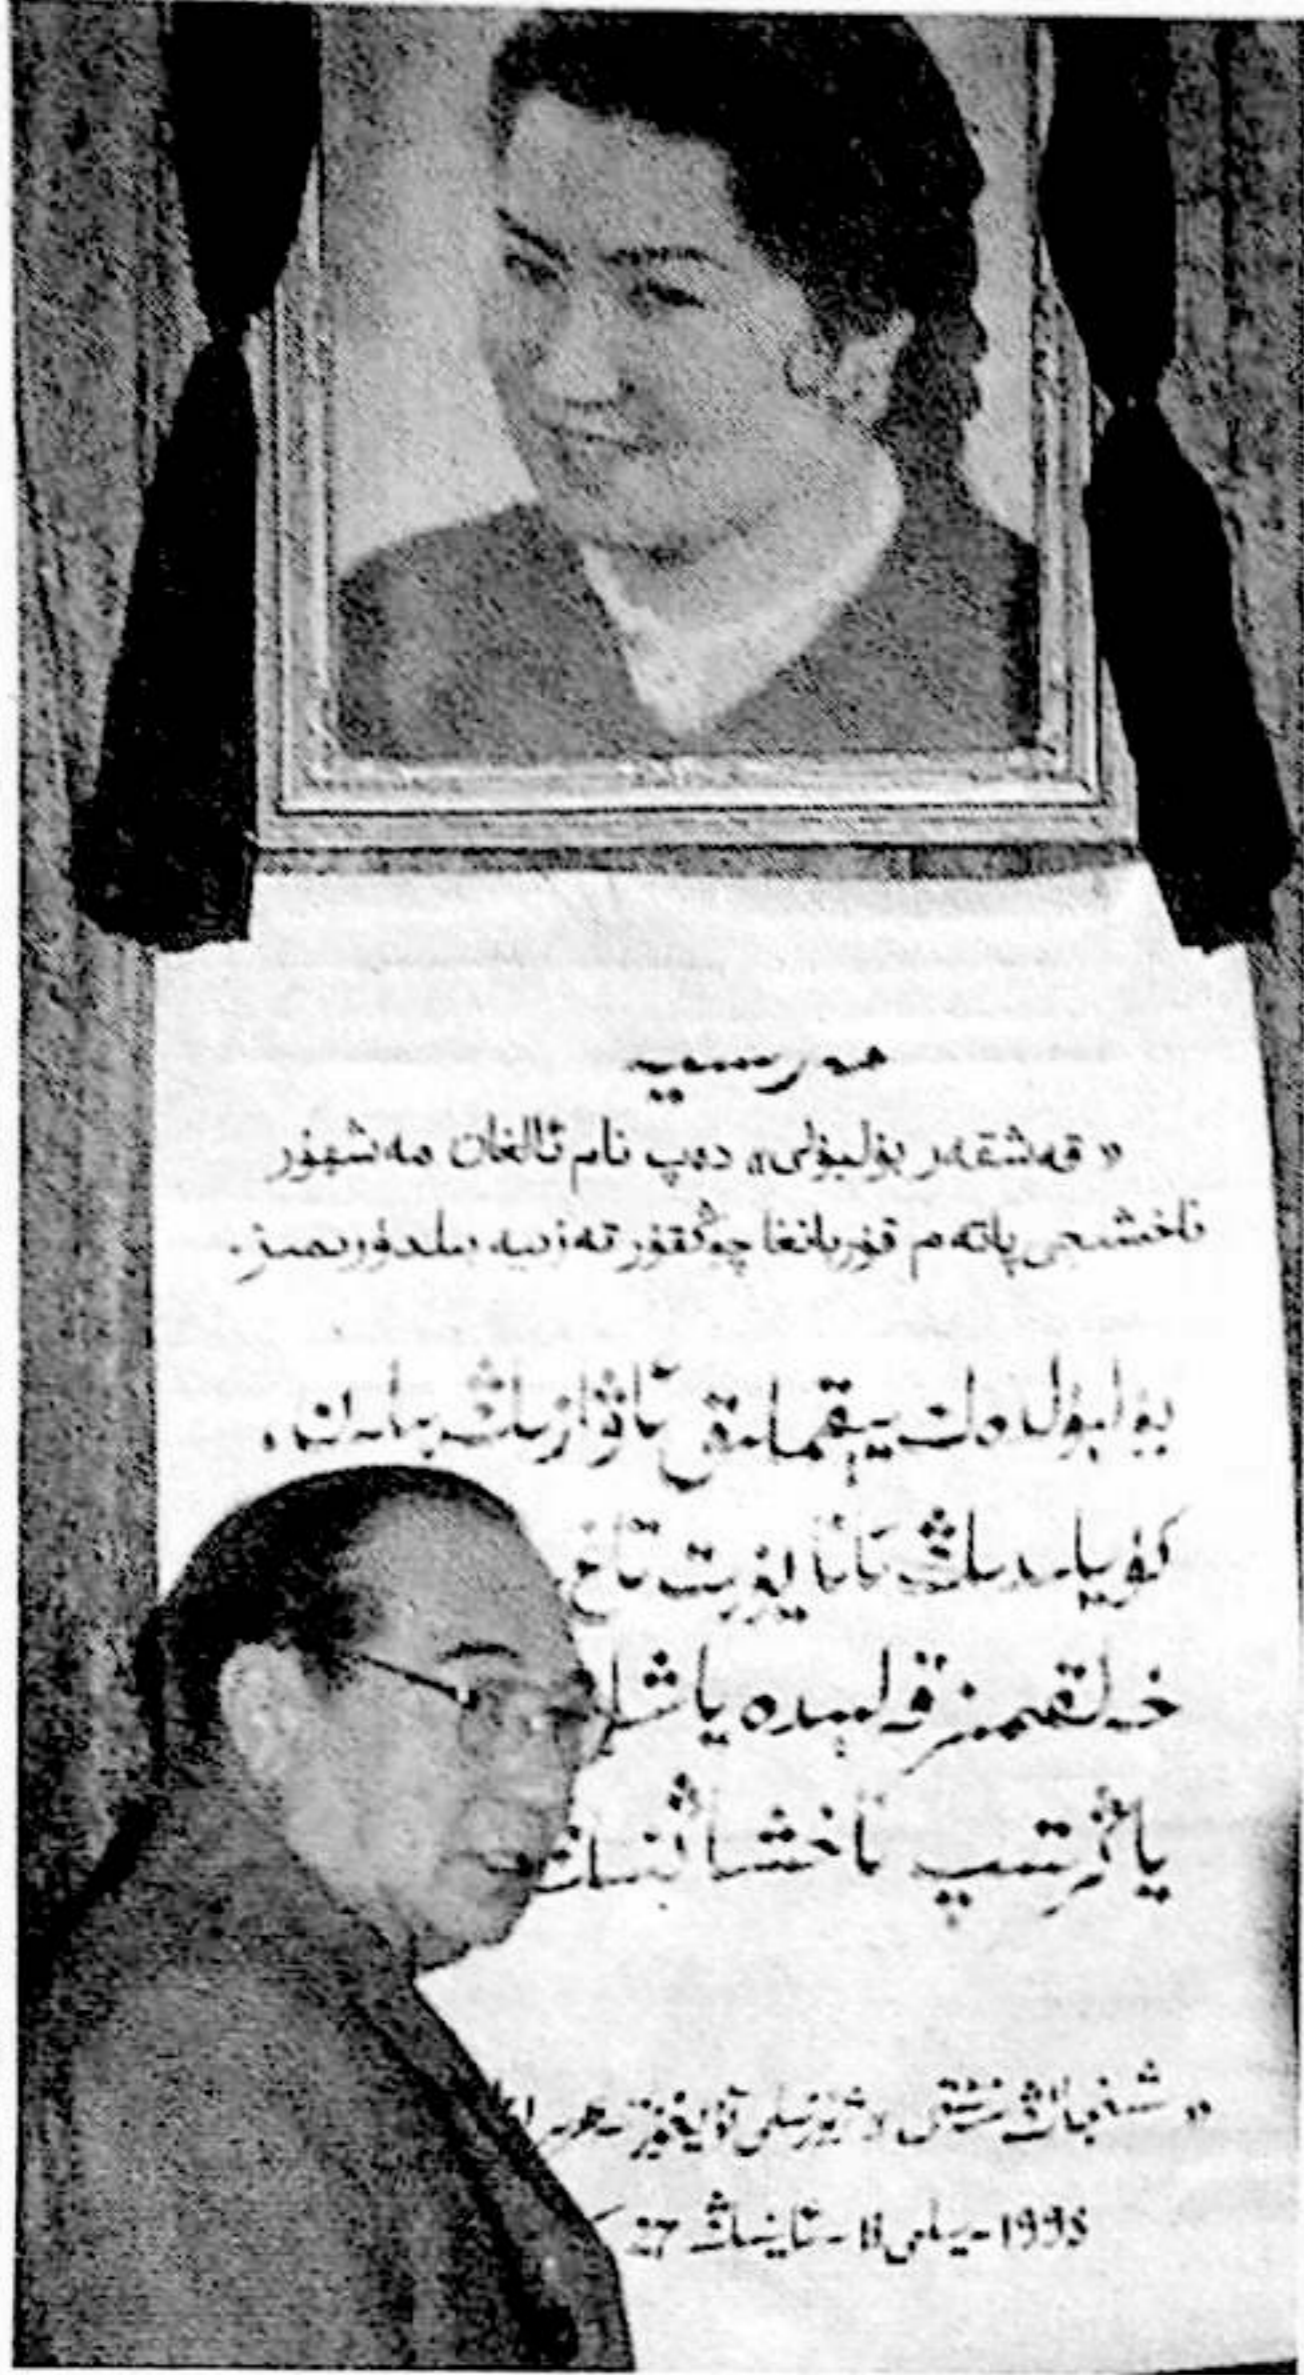 مەرسىيە
« قەشقەر بۇلبۇلى» دەپ نام ئالغان مەشھۇر
ناخشىچى پاتەم قۇربانغا چوڭقۇر تەزىيە بىلدۈرىمىز.
بۇلبۇلدەك يېقىملىق ئاۋازىڭ بىلەن،
كۈيلىدىڭ ئانا يۇرت تاغ
خەلقىمىز قەلبىدە ياشا
ياڭرىتىپ ناخشاڭنىڭ
« شىنجاڭ
1995-يىلى 11-ئاينىڭ 27